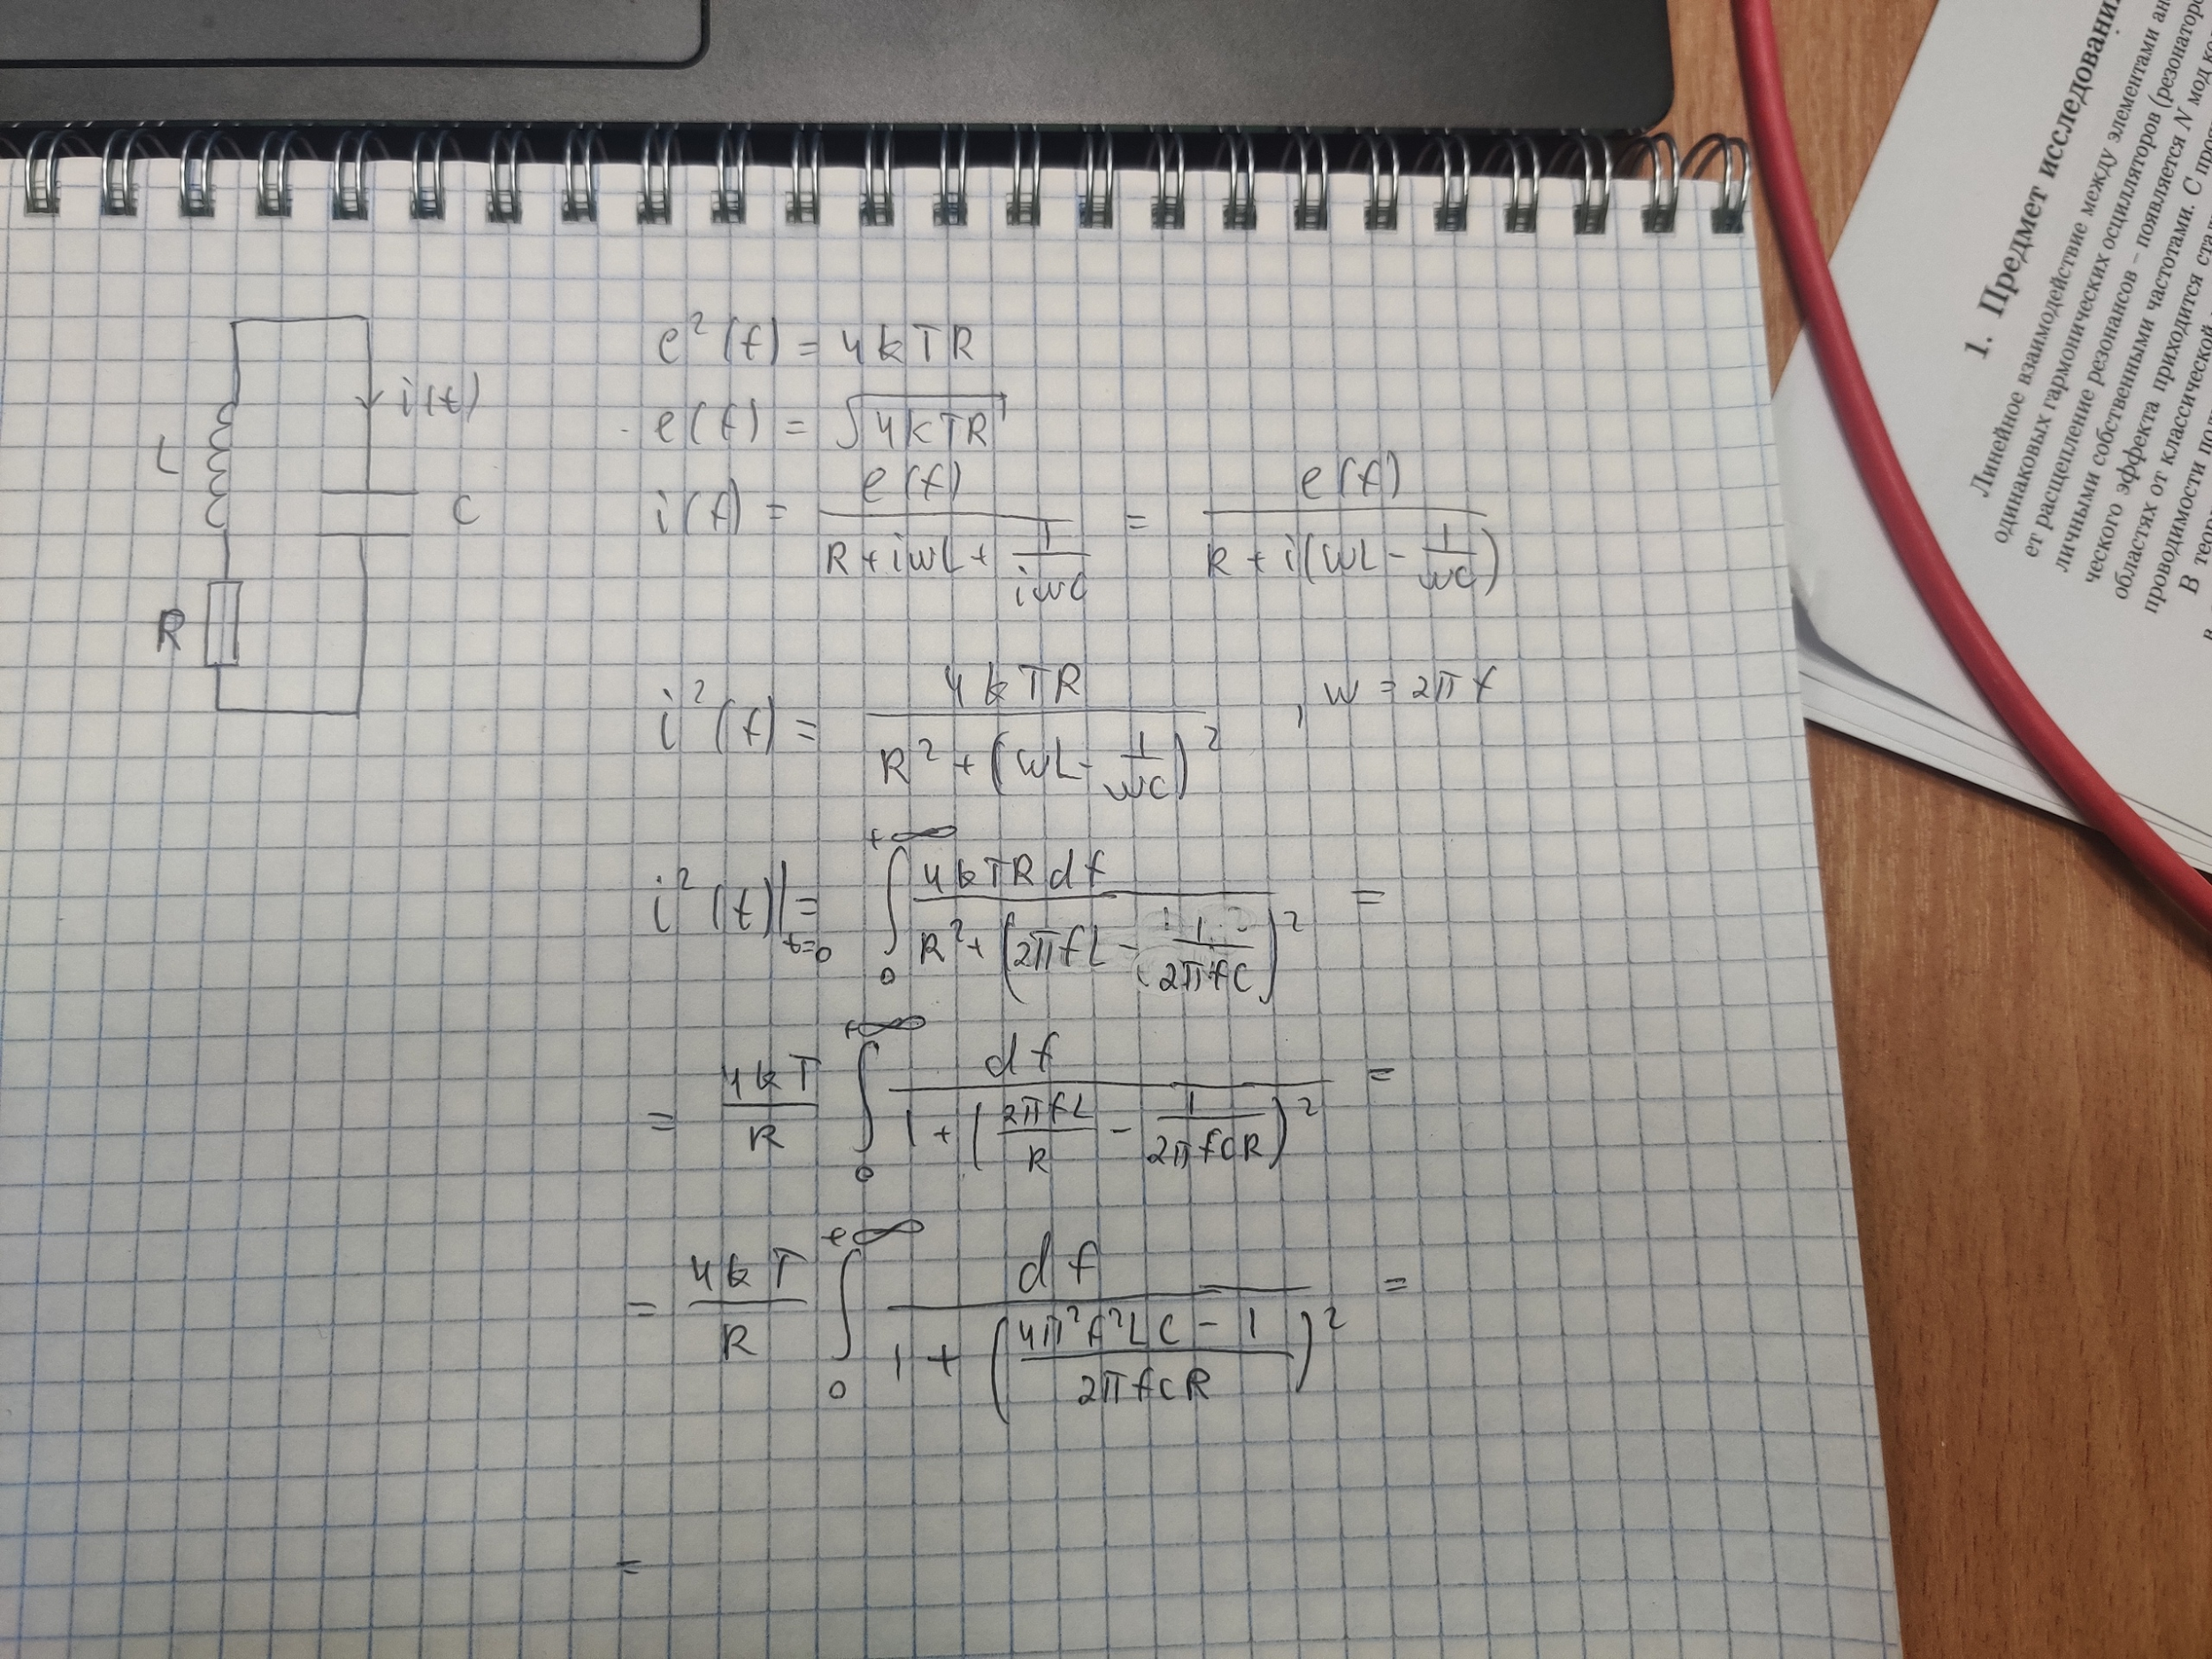 L
R
C
i(t)
e²(f) = 4kTR
e(f) = √4kTR
i(f) = e(f) / (R + iwL + 1/(iwC)) = e(f) / (R + i(wL - 1/(wC)))
i²(f) = 4kTR / (R² + (wL - 1/(wC))²) , w = 2πf
i²(t)|t=0 = ∫₀^{+∞} 4kTR df / (R² + (2πfL - 1/(2πfC))²) =
= 4kT/R ∫₀^{+∞} df / (1 + (2πfL/R - 1/(2πfCR))²) =
= 4kT/R ∫₀^{+∞} df / (1 + ((4π²f²LC - 1)/(2πfCR))²) =
=
1. Предмет исследования
Линейное взаимодействие между элементами
одинаковых гармонических осцилляторов (резонаторо
ет расщепление резонансов – появляется N мод
личными собственными частотами. С
ческого эффекта приходится
областях от классической
проводимости
В